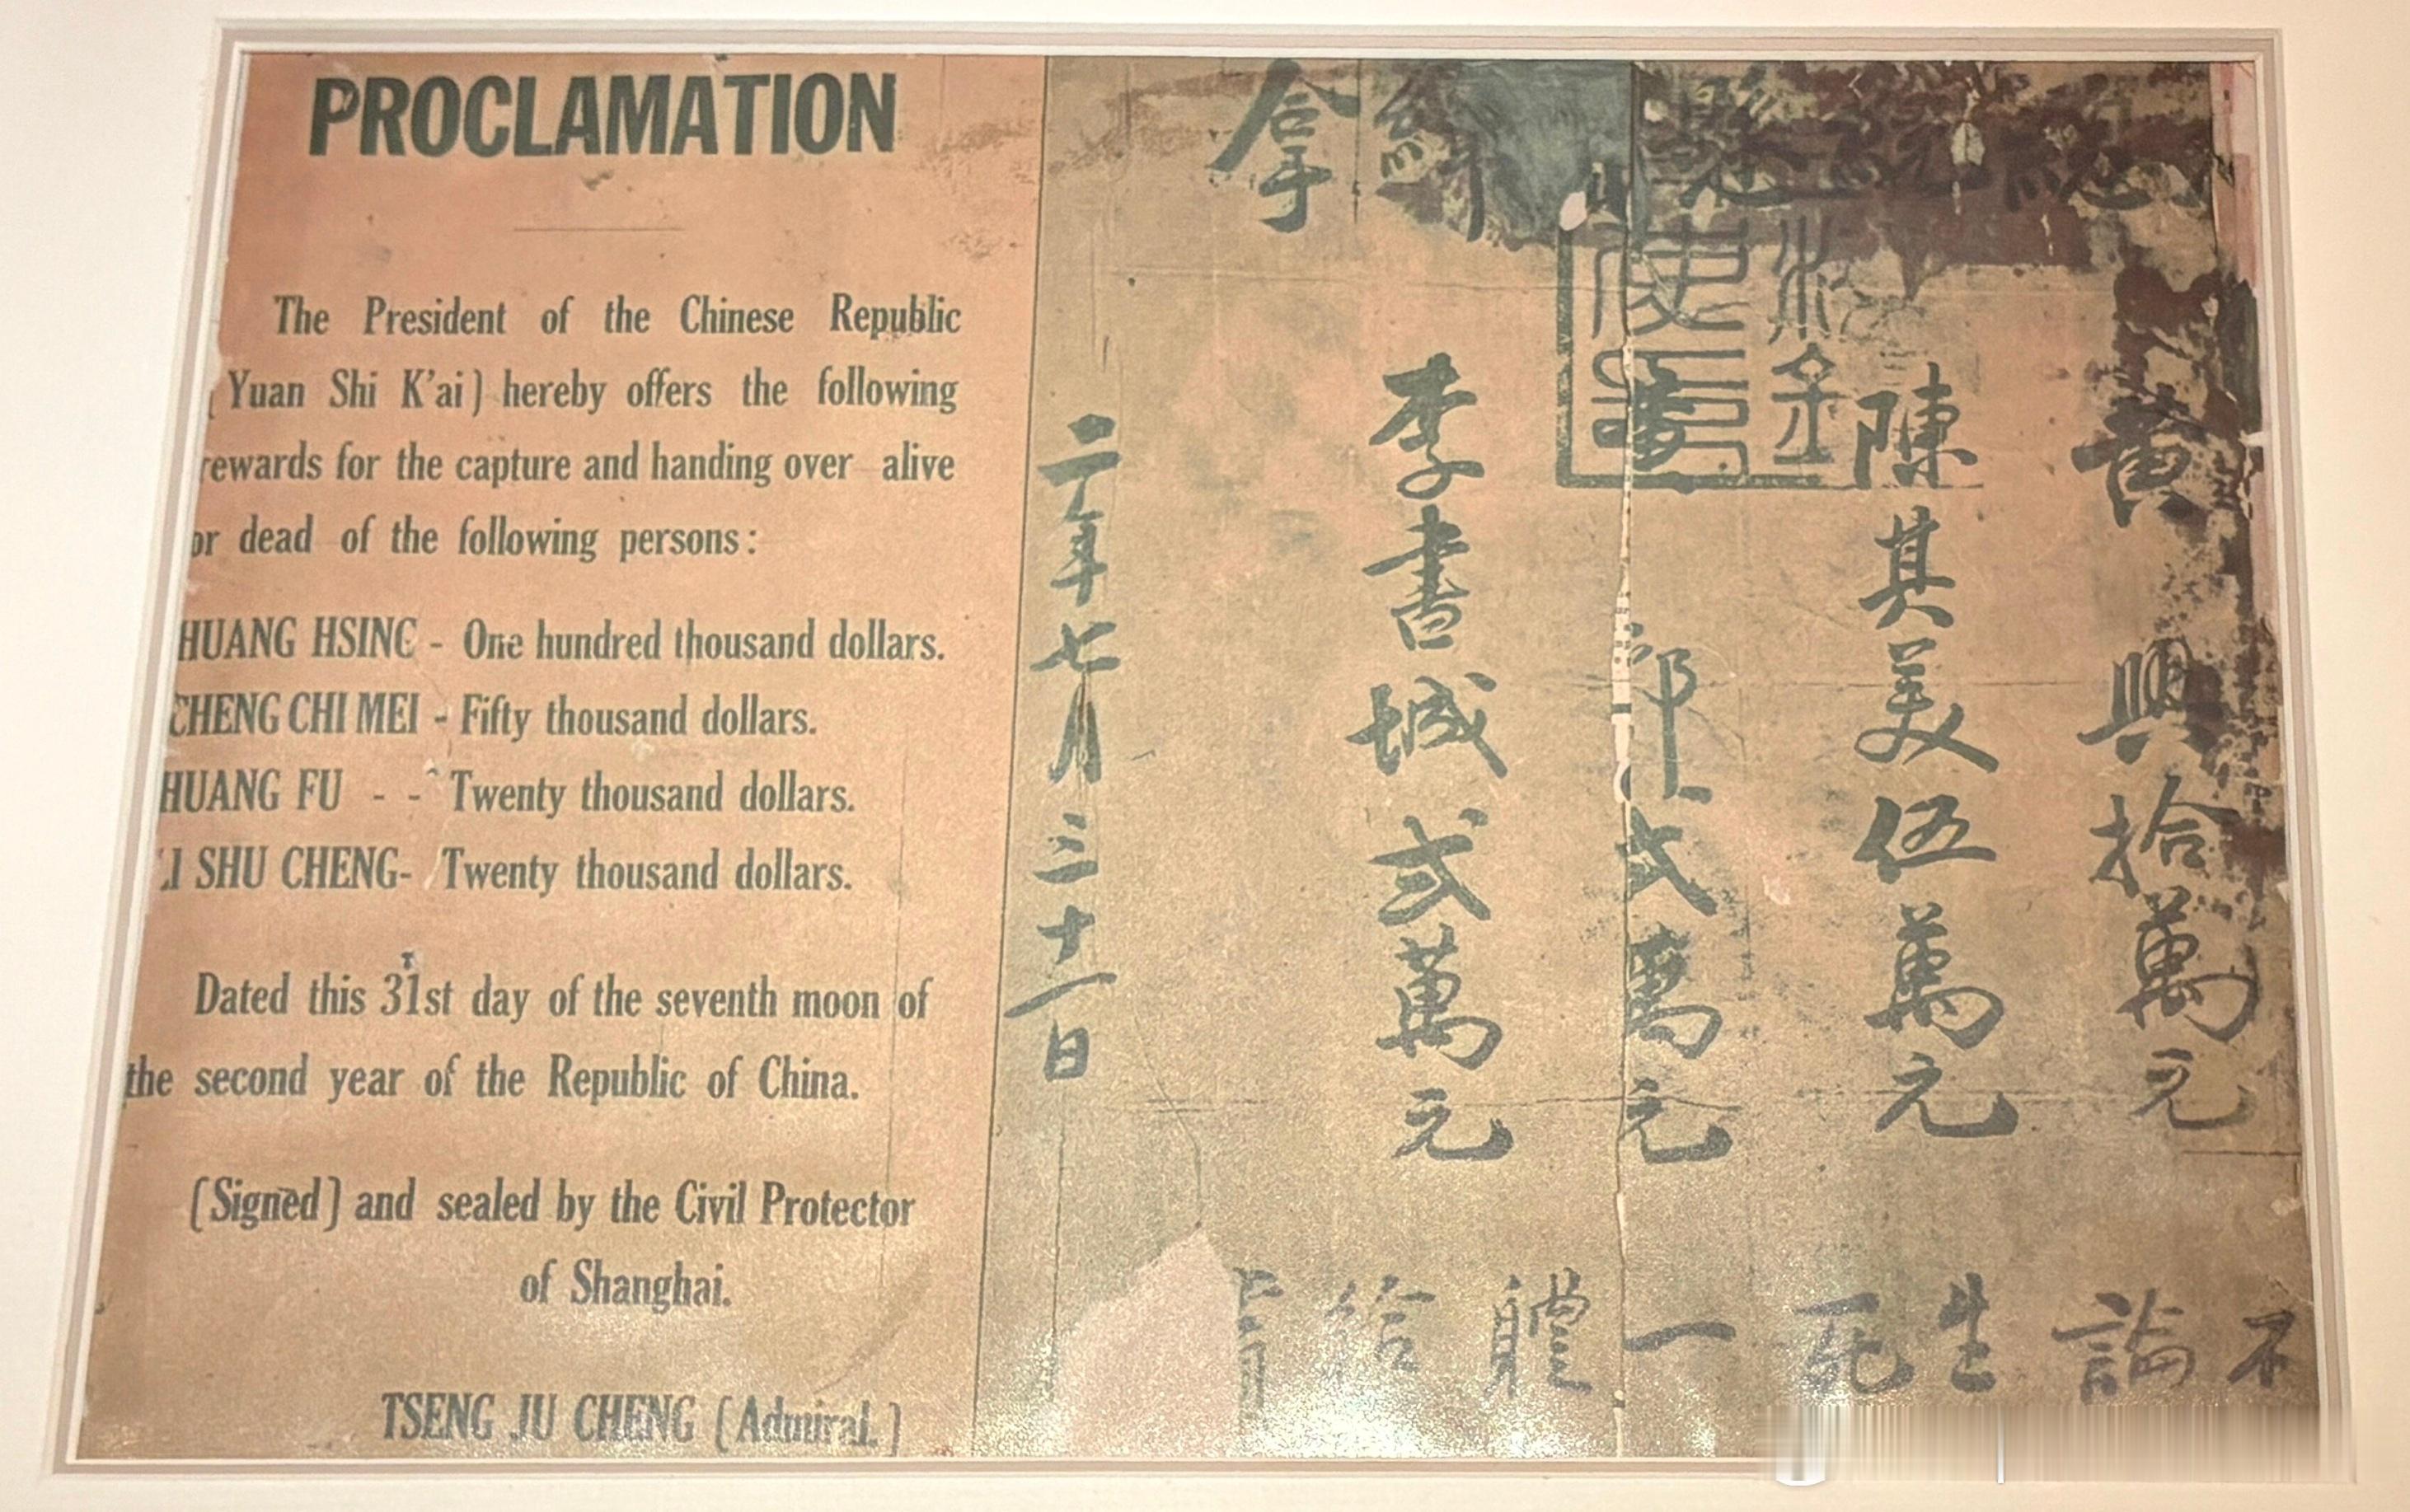 PROCLAMATION
The President of the Chinese Republic
(Yuan Shi K'ai) hereby offers the following
rewards for the capture and handing over alive
or dead of the following persons:
HUANG HSING - One hundred thousand dollars.
CHENG CHI MEI - Fifty thousand dollars.
HUANG FU - - Twenty thousand dollars.
LI SHU CHENG- Twenty thousand dollars.
Dated this 31st day of the seventh moon of
the second year of the Republic of China.
(Signed) and sealed by the Civil Protector
of Shanghai.
TSENG JU CHENG (Admiral.)
黃興拾萬元
陳其美伍萬元
黃郛弍萬元
李書城弍萬元
不論生死一體給賞
二年七月三十一日